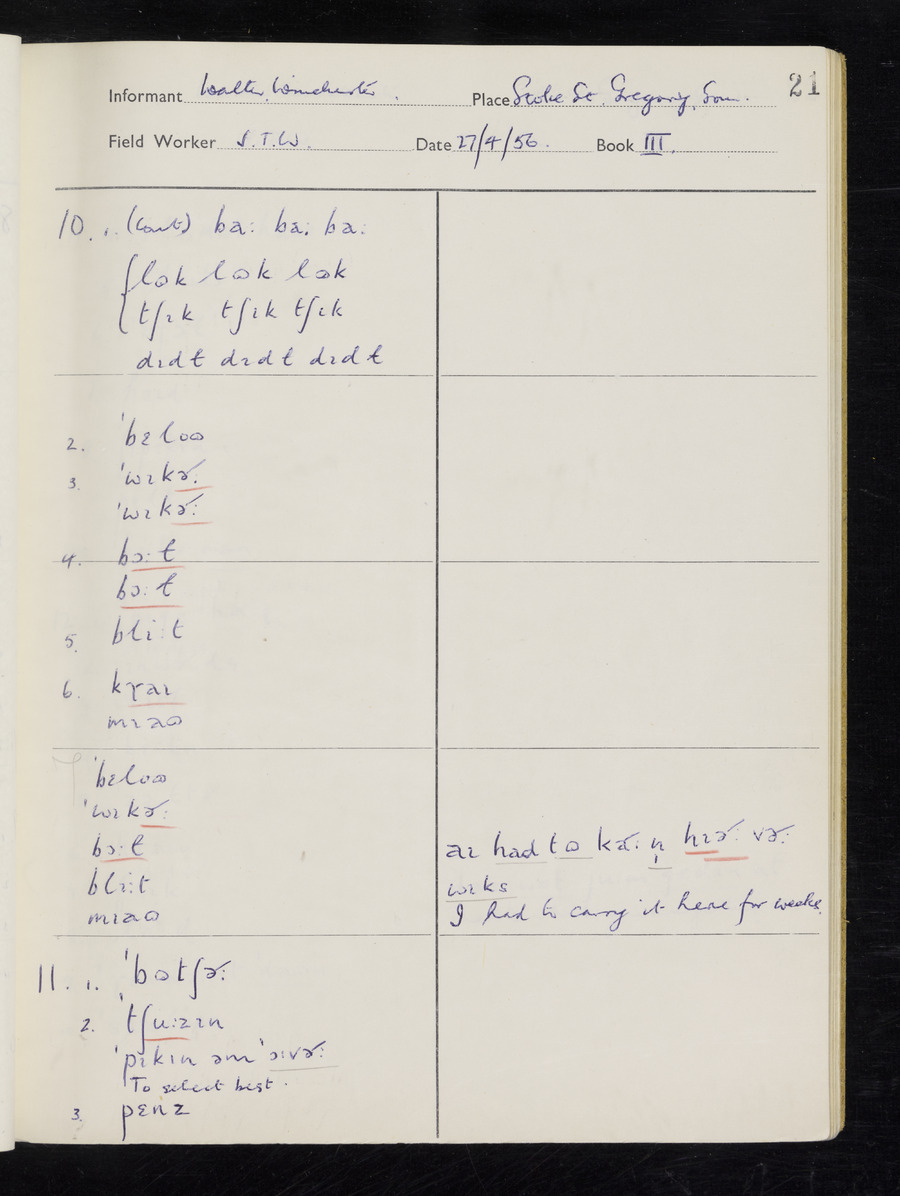 21
Informant Walter Winchester. Place Stoke St. Gregory, Som.
Field Worker J.T.W. Date 27/4/56. Book III.
10. 1. (cont) ba: ba: ba:
lɒk lɒk lɒk
tʃɪk tʃɪk tʃɪk
dɪdɫ dɪdɫ dɪdɫ
2. ˈbɛloʊ
3. ˈwɪkɚ:
ˈwɪkɚ:
4. bɔ:ɫ
bɔ:ɫ
5. bli:t
6. kɽaɪ
mɪaʊ
ˈbɛloʊ
ˈwɪkɚ:
bɔ:ɫ
bli:t
mɪaʊ
aɪ had tʊ kɚ: n̩ hɪɚ: vɚ:
wɪks
I had to carry it here for weeks.
11. 1. ˈbʊtʃɚ:
2. ˈtʃu:zɪn
ˈpɪkɪn əm ˈɔ:vɚ:
To select best.
3. pɛnz